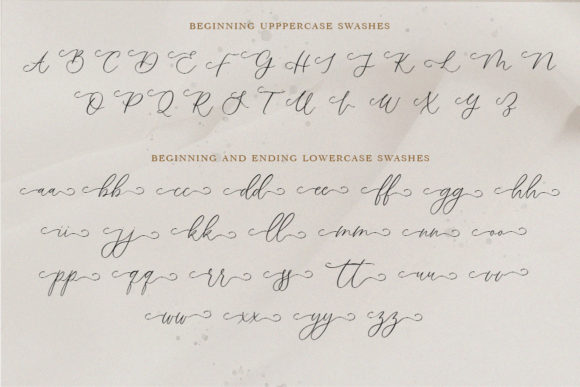 BEGINNING UPPPERCASE SWASHES
A B C D E F G H I J K L M N
O P Q R S T U V W X Y Z
BEGINNING AND ENDING LOWERCASE SWASHES
aa bb cc dd ee ff gg hh
ii jj kk ll mm nn oo
pp qq rr ss tt uu vv
ww xx yy zz